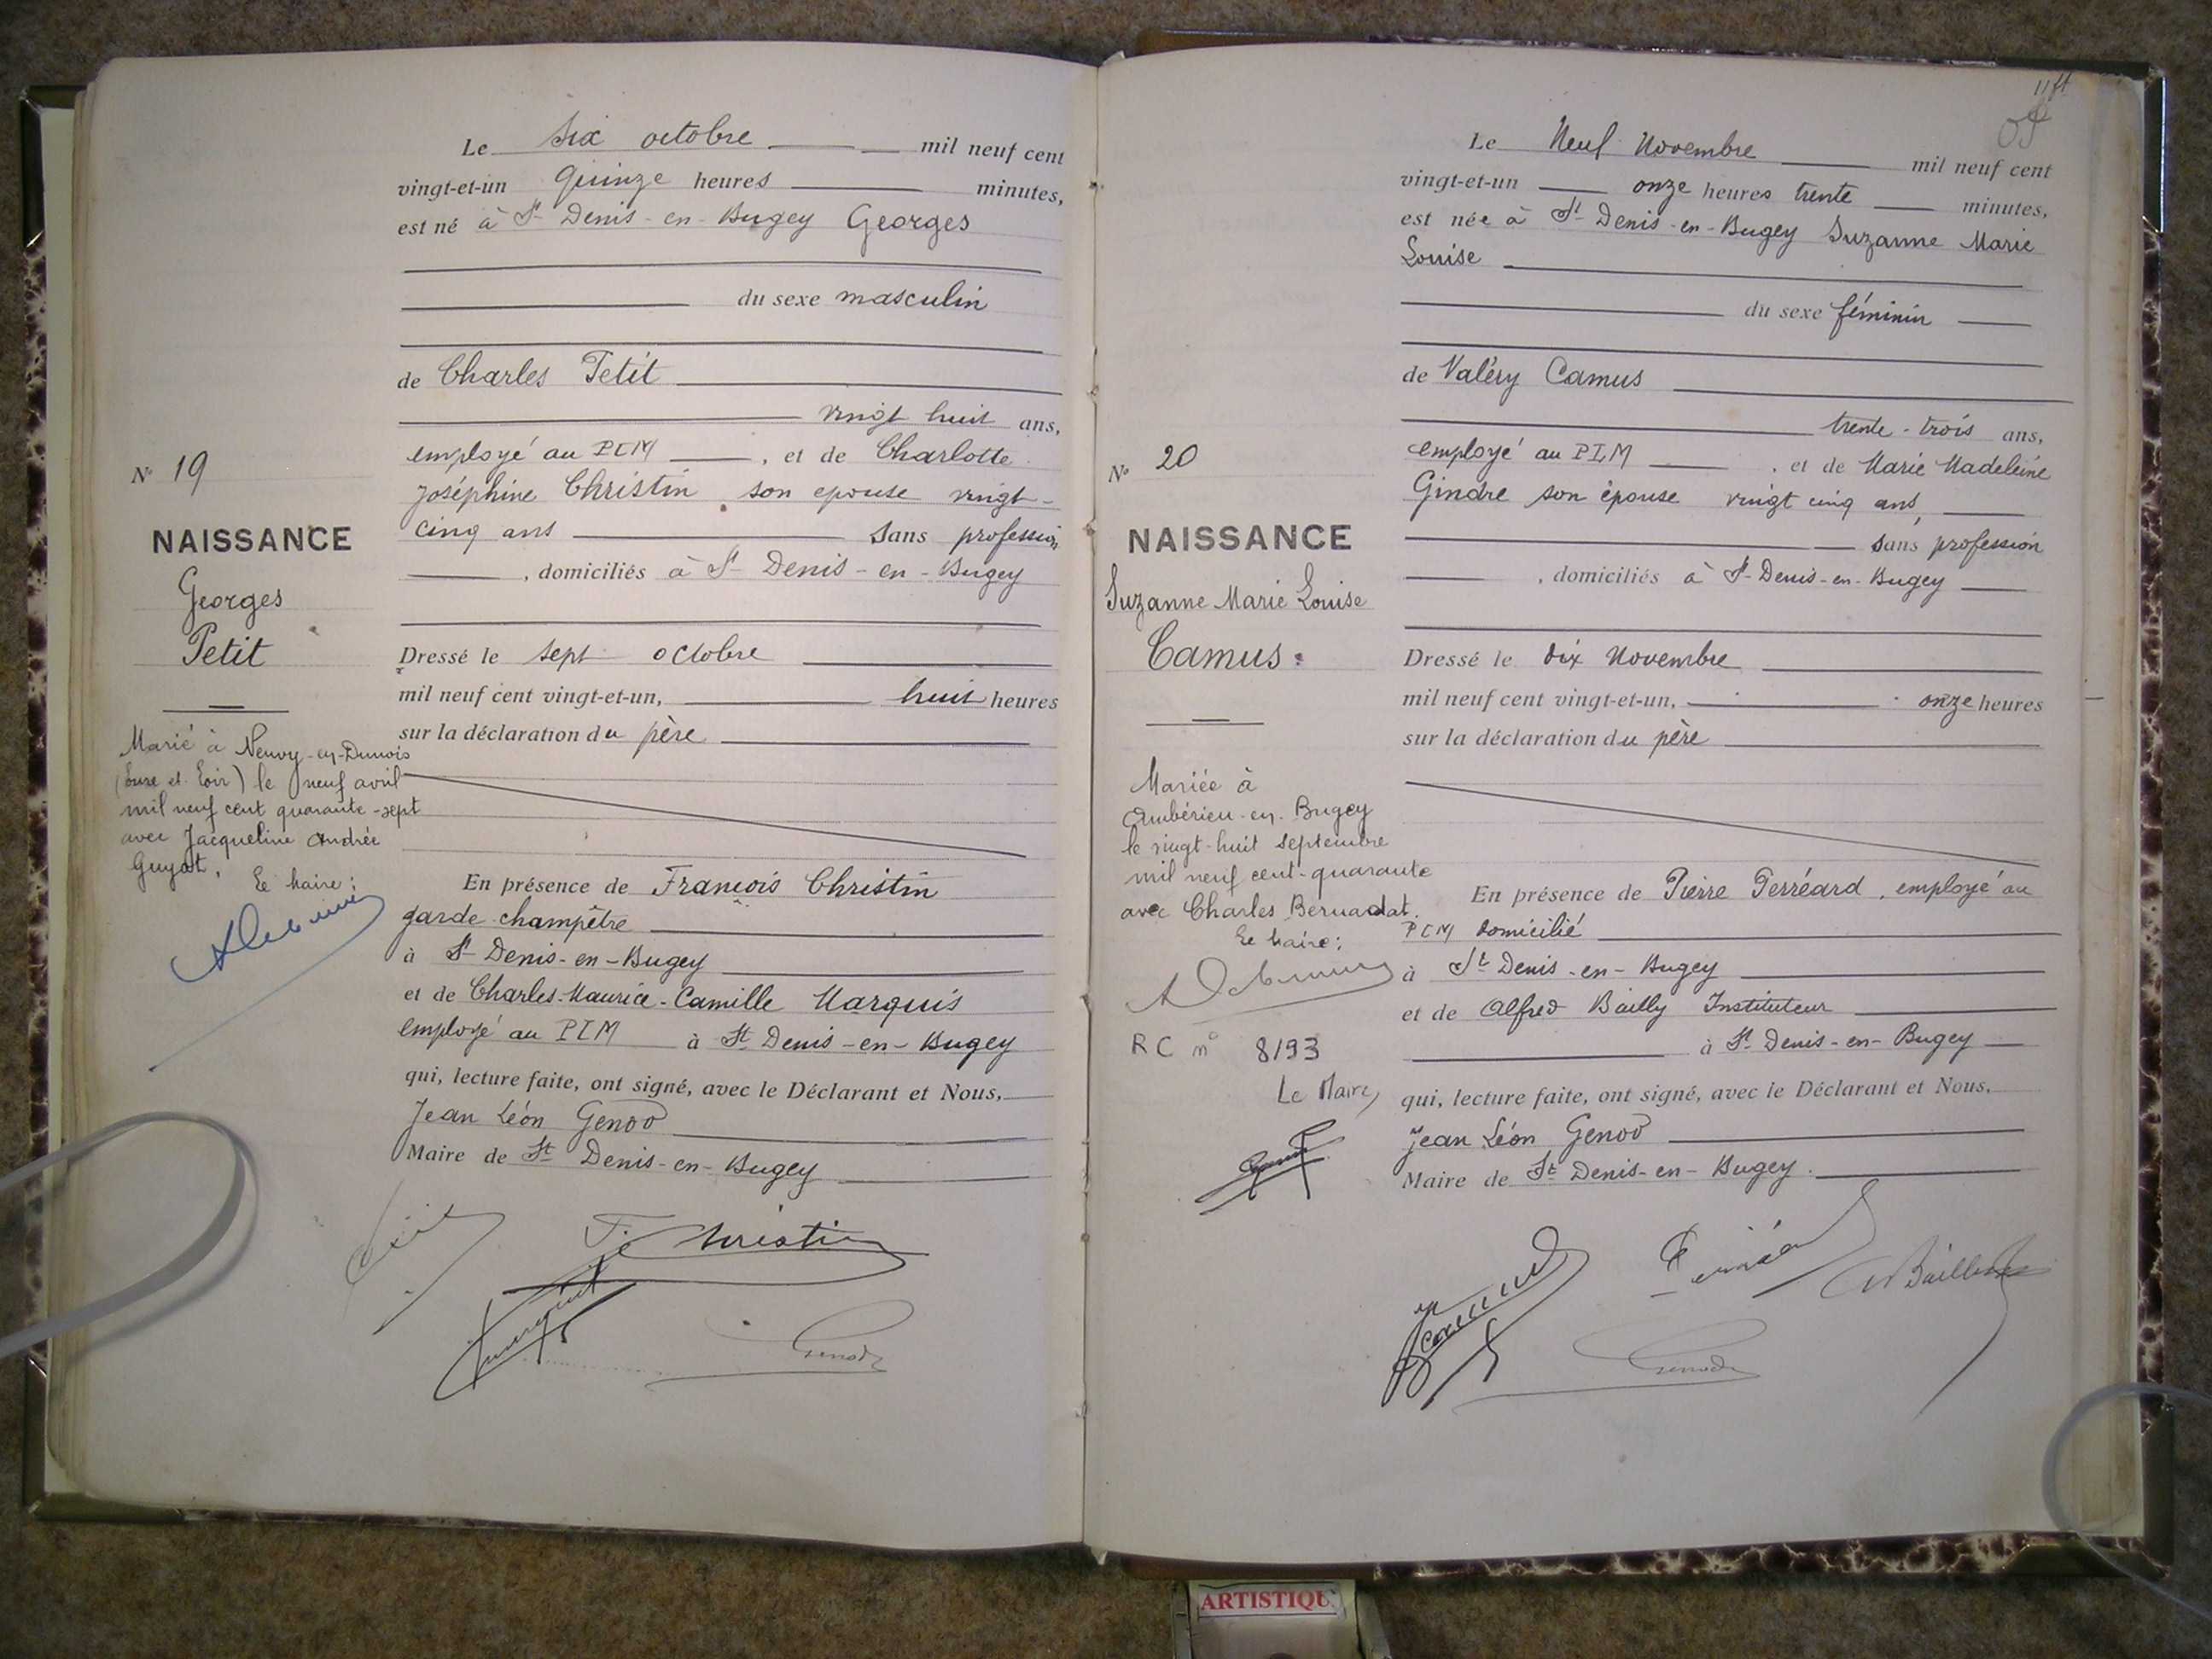 Le six octobre mil neuf cent
vingt-et-un quinze heures minutes,
est né à St Denis-en-Bugey Georges
du sexe masculin
de Charles Petit
vingt huit ans,
employé au PLM , et de Charlotte
Joséphine Christin son epouse vingt-
cinq ans sans profession
, domiciliés à St Denis-en-Bugey
Dressé le sept octobre
mil neuf cent vingt-et-un, huit heures
sur la déclaration du père
En présence de François Christin
garde-champêtre
à St Denis-en-Bugey
et de Charles-Maurice-Camille Marquis
employé au PLM à St Denis-en-Bugey
qui, lecture faite, ont signé, avec le Déclarant et Nous,
Jean Léon Genod
Maire de St Denis-en-Bugey
F. Christin
Genod
N° 19
NAISSANCE
Georges
Petit
Marié à Neuvy-en-Dunois
(Eure et Loir) le neuf avril
mil neuf cent quarante-sept
avec Jacqueline Andrée
Guyot.
Le Maire:
Le Neuf Novembre mil neuf cent
vingt-et-un onze heures trente minutes,
est née à St Denis-en-Bugey Suzanne Marie
Louise
du sexe féminin
de Valéry Camus
trente-trois ans,
employé au PLM , et de Marie Madeleine
Gindre son épouse vingt cinq ans,
sans profession
, domiciliés à St Denis-en-Bugey
Dressé le dix Novembre
mil neuf cent vingt-et-un, onze heures
sur la déclaration du père
En présence de Pierre Perréard, employé au
PLM domicilié
à St Denis-en-Bugey
et de Alfred Bailly Instituteur
à St Denis-en-Bugey
qui, lecture faite, ont signé, avec le Déclarant et Nous,
Jean Léon Genod
Maire de St Denis-en-Bugey.
Genod
N° 20
NAISSANCE
Suzanne Marie Louise
Camus
Mariée à
Ambérieu-en-Bugey
le vingt-huit septembre
mil neuf cent-quarante
avec Charles Bernadat.
Le Maire:
RC n° 8/93
Le Maire,
ARTISTIQU